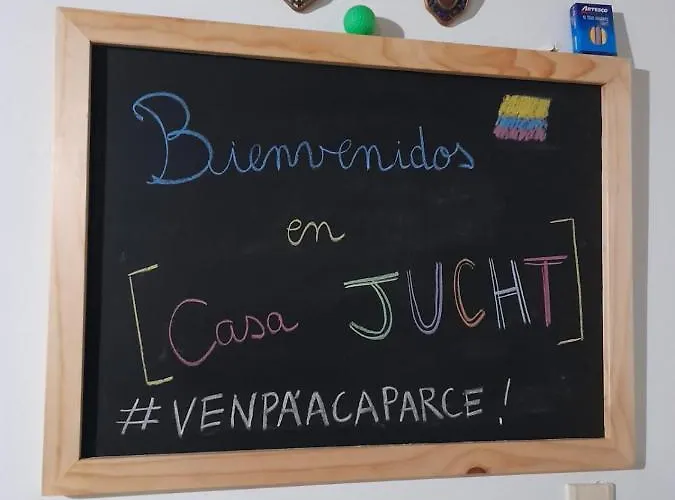 ARTESCO
Bienvenidos
en
[Casa JUCHT]
#VENPÁACAPARCE!